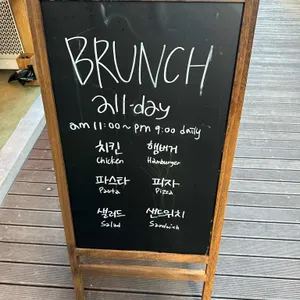 BRUNCH
all-day
am 11:00~pm 9:00 daily
치킨 햄버거
Chicken Hamburger
파스타 피자
Pasta Pizza
샐러드 샌드위치
Salad Sandwich